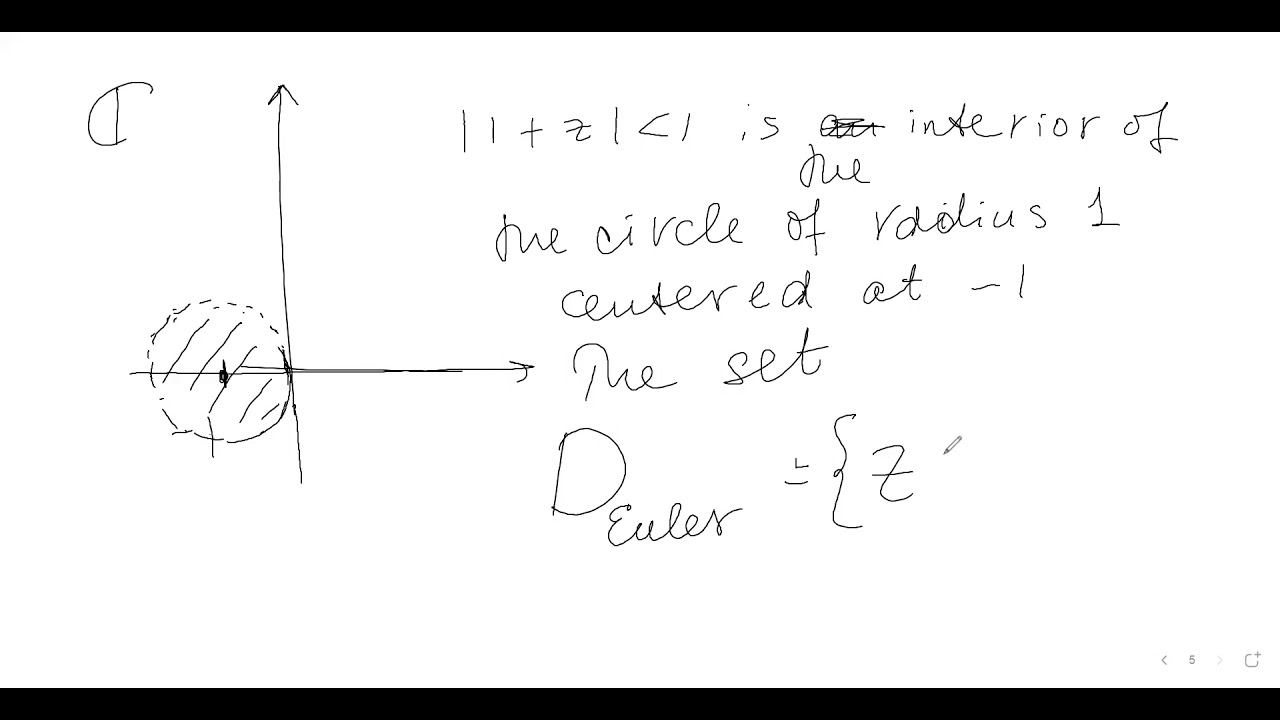 ℂ
|1+z|<1 is interior of
the
the circle of radius 1
centered at -1
The set
D_Euler = {z
5